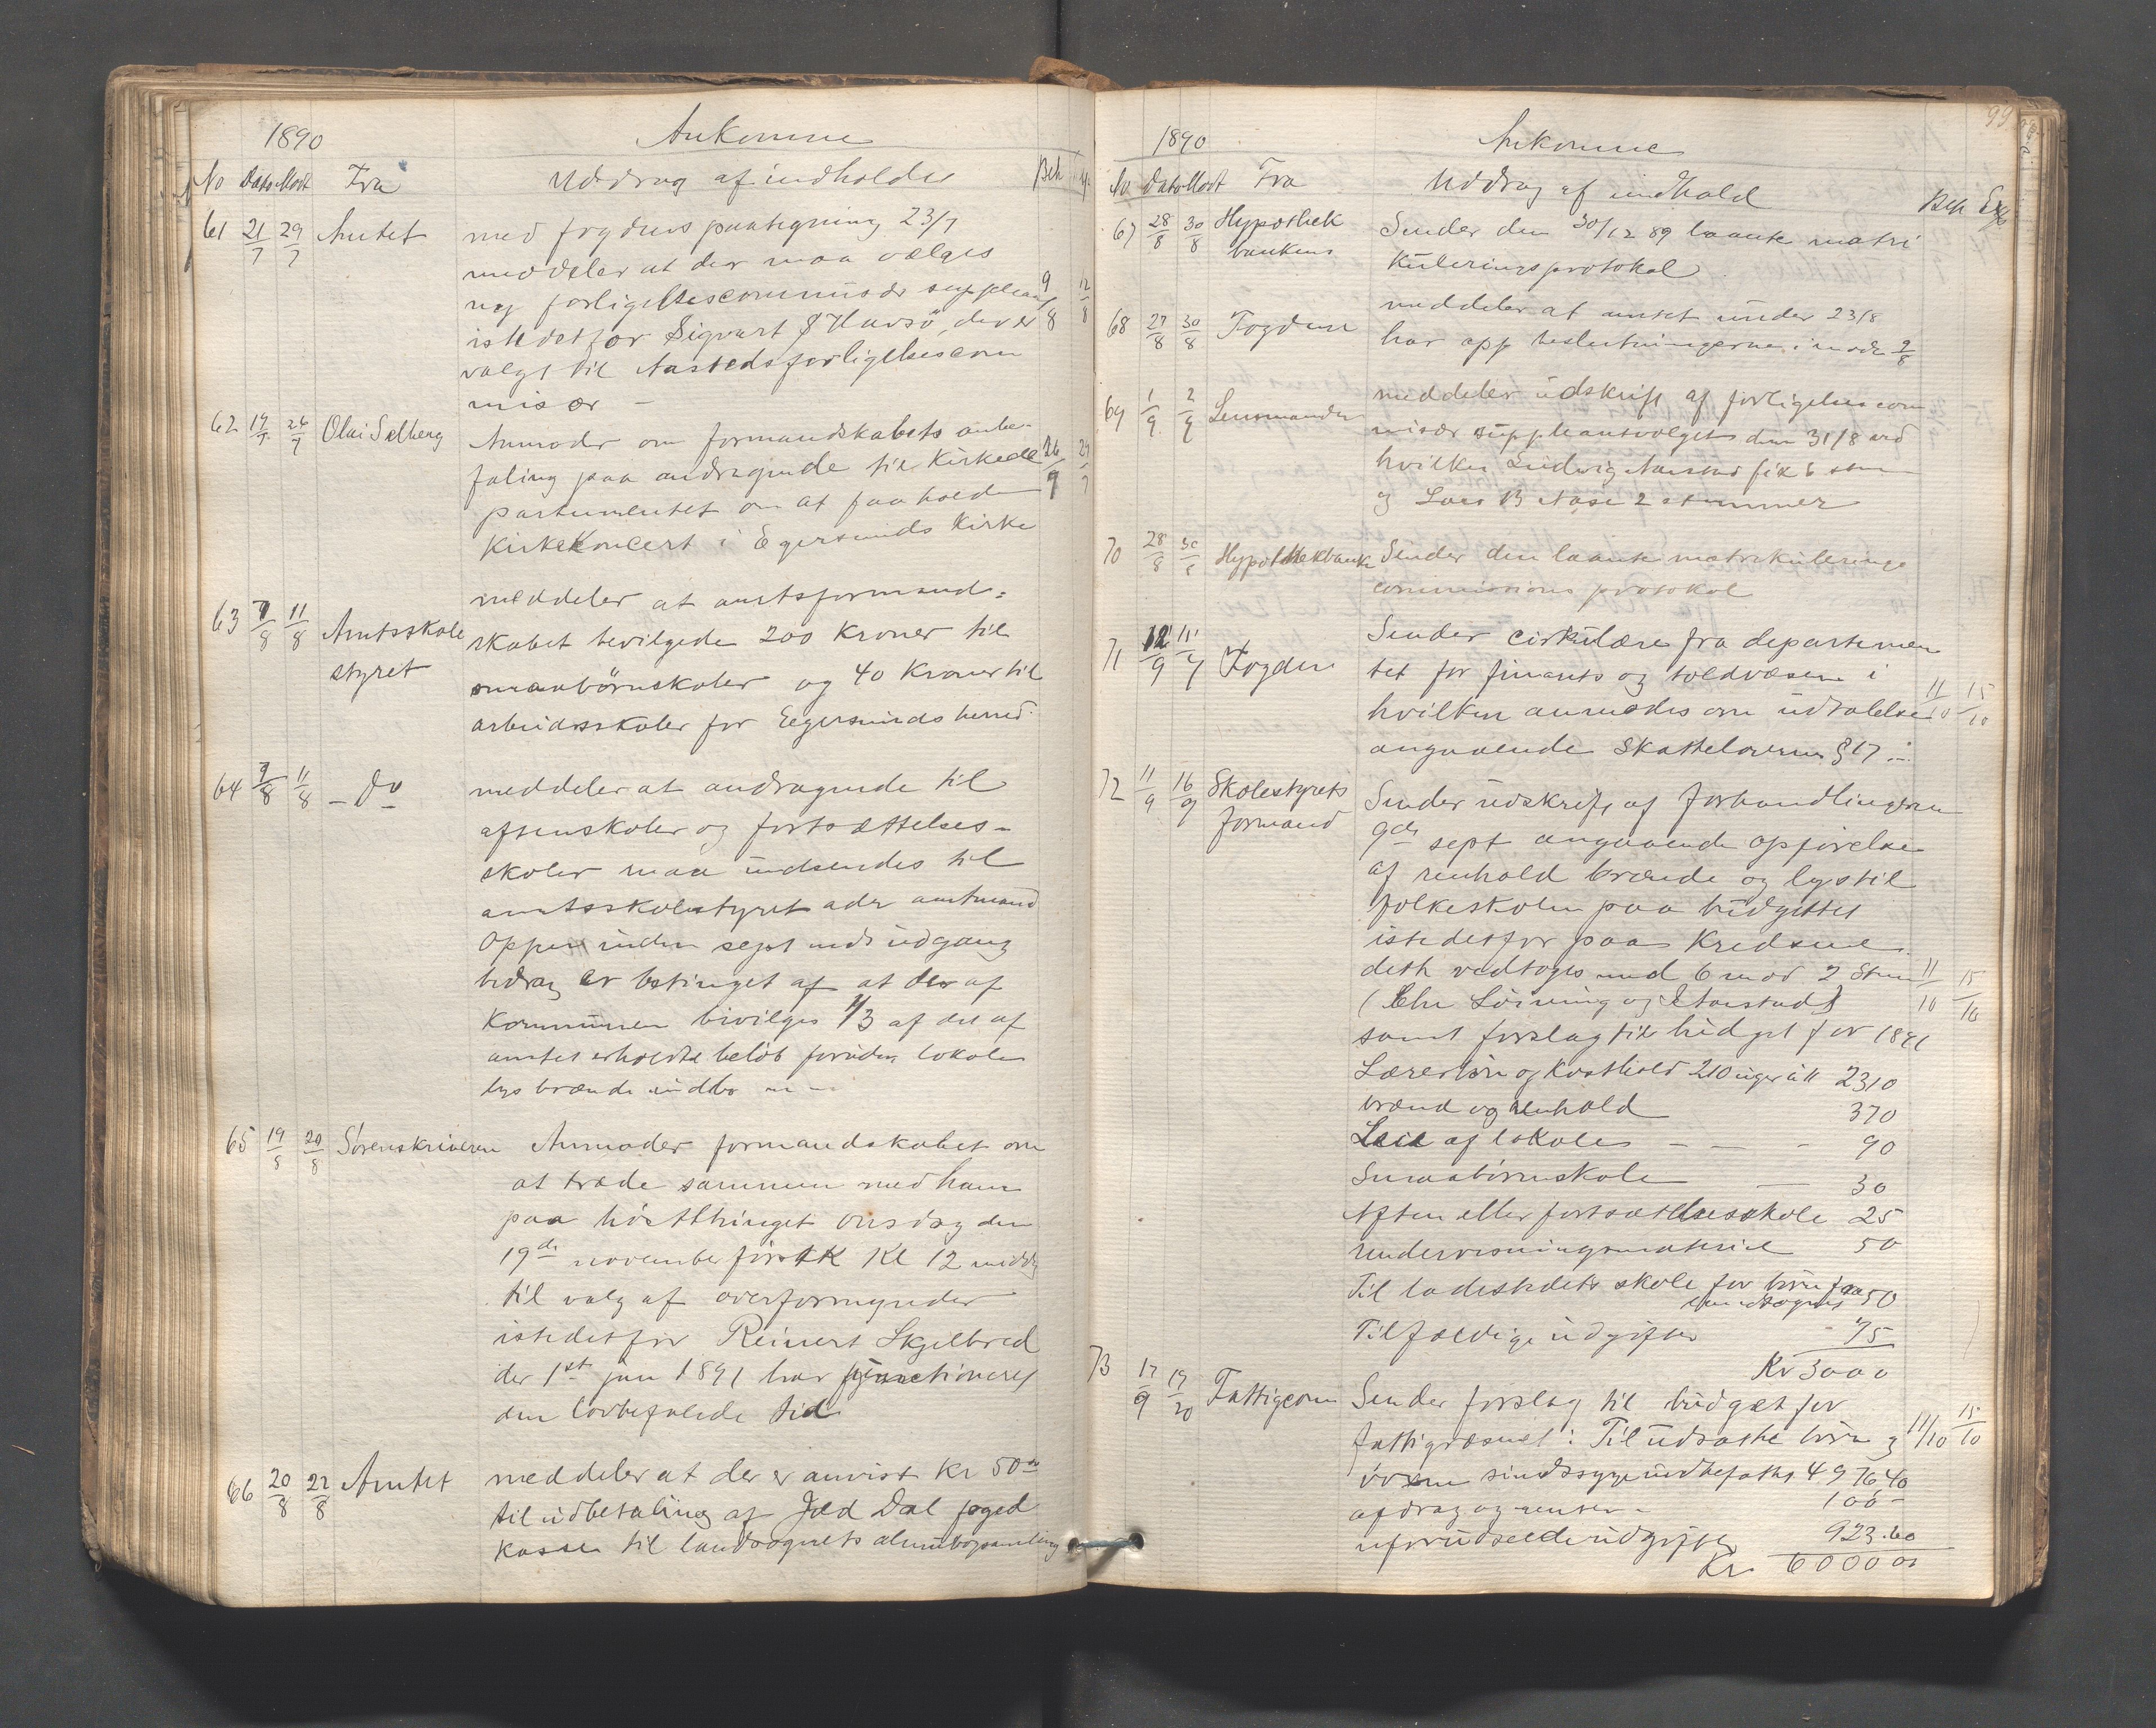 1890 Ankomne
No Dato Modt Fra Uddrag af indholdet Beh
61 21/7 29/7 Amtet med fogdens paategning 23/7
meddeler at der maa vælges
ny forligelsescommisær suppleant 9/8 12/8
istedetfor Sigvart J Havsö, der er
valgt til Aastedsforligelsescom
misær —
62 19/7 26/7 Olai Sælberg Anmoder om formandskabets anbe-
faling paa andragende til Kirkede 26/7 29/7
partementet om at faa holde
Kirkekoncert i Egersunds Kirke
63 7/8 11/8 Amtsskole meddeler at amtsformand=
styret skabet bevilgede 200 Kroner til
smaabörnskoler og 40 Kroner til
arbeidsskoler for Egersunds herred.
64 9/8 11/8 — do meddeler at andragende til
aftenskoler og fortsættelses-
skoler maa indsendes til
amtsskolestyret ader amtmand
Oppen inden sept mds udgang
bidrag er betinget af at der af
Kommunen bivilges 1/3 af det af
amtet erholdte beløb foruden lokale
lys brænde indbo
65 19/8 20/8 Sorenskriveren Anmoder formandskabet om
at træde sammen med ham
paa hösttinget onsdag den
19de november förstk Kl 12 midd
til valg af overformynder
istedetfor Reinert Skjelbred
der 1st jan 1891 har functioneret
den lovbefalede tid
66 20/8 22/8 Amtet meddeler at der er anvist Kr 50
til udbetaling af Jæd Dal foged
kasse til landsognets almubogsamling
99
1890 Ankomne
No Dato Modt Fra Uddrag af indhold Beh Exp
67 28/8 30/8 Hypothek Sender den 30/12 89 laante matri
bankens kuleringsprotokol
68 27/8 30/8 Fogden meddeler at amtet under 23/8
har app beslutningerne i møde 9/8
69 1/9 2/9 Lensmanden meddeler udskrift af forligelsescom
misær suppleantvalget den 31/8 ved
hvilken Ludvig Aarstad fik 6 stem
og Lars B Aase 2 stemmer
70 28/8 30/8 Hypothekbank Sender den laante matrikulerings
commissions protokol
71 12/9 11/9 Fogden Sender cirkulære fra departemen
tet for finants og toldvæsen i
hvilken anmodes om udtalelse 11/10 15/10
angaaende Skatteloven § 17
72 11/9 16/9 Skolestyrets Sender udskrift af forhandlingerne
formand 9de sept angaaende opførelse
af renhold brænde og lys til
folkeskolen paa budgettet
istedetfor paa Kredsene
dette vedtoges med 6 mod 2 Stem 11/10 15/10
(Chr Löining og Aarstad)
samt forslag til budget for 1891
Lærerløn og Kosthold 210 uger à 11 2310
brænd og renhold 370
Leie af lokale — — - 90
Smaabörnskole — 30
Aften eller fortsættelsesskole 25
undervisningsmateriel 50
Til ladestedets skole for börn fra
landsognet 50
Tilfældige udgifter 75
Kr 3000
73 17/9 19/20 Fattigcom Sender forslag til budget for
fattigvæsnet: Til udsatte börn og 11/10 15/10
sindssyge 4976.40
afdrag og renter - 100 -
uforudseede udgifter 923.60
Kr. 6000 00